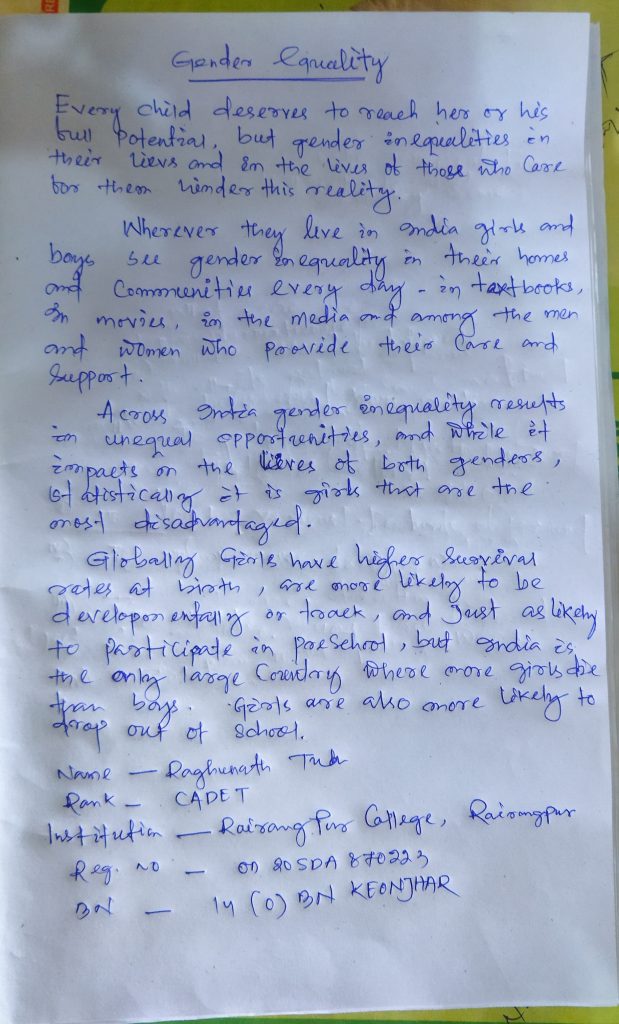 Gender Equality
Every child deserves to reach her or his
full Potential, but gender inequalities in
their lievs and in the lives of those who Care
for them hinder this reality.
Wherever they live in india girls and
boys see gender inequality in their homes
and Communities every day - in taxtbooks,
In movies, in the media and among the men
and women who proovide their Care and
Support.
Across India gender inequality results
in unequal opportunities, and while it
impacts on the lieves of both genders,
statistically it is girls that are the
most disadvantaged.
Globally Girls have higher survival
rates at birth, are more likely to be
developmentally on track, and Just as likely
to participate in Preschool, but india is
the only large Country where more girls die
than boys. Girls are also more likely to
drop out of school.
Name — Raghunath
Rank — CADET
Institution — Rairangpur College, Rairangpur
Reg. no — OD 20SDA 870223
BN — 14 (O) BN KEONJHAR